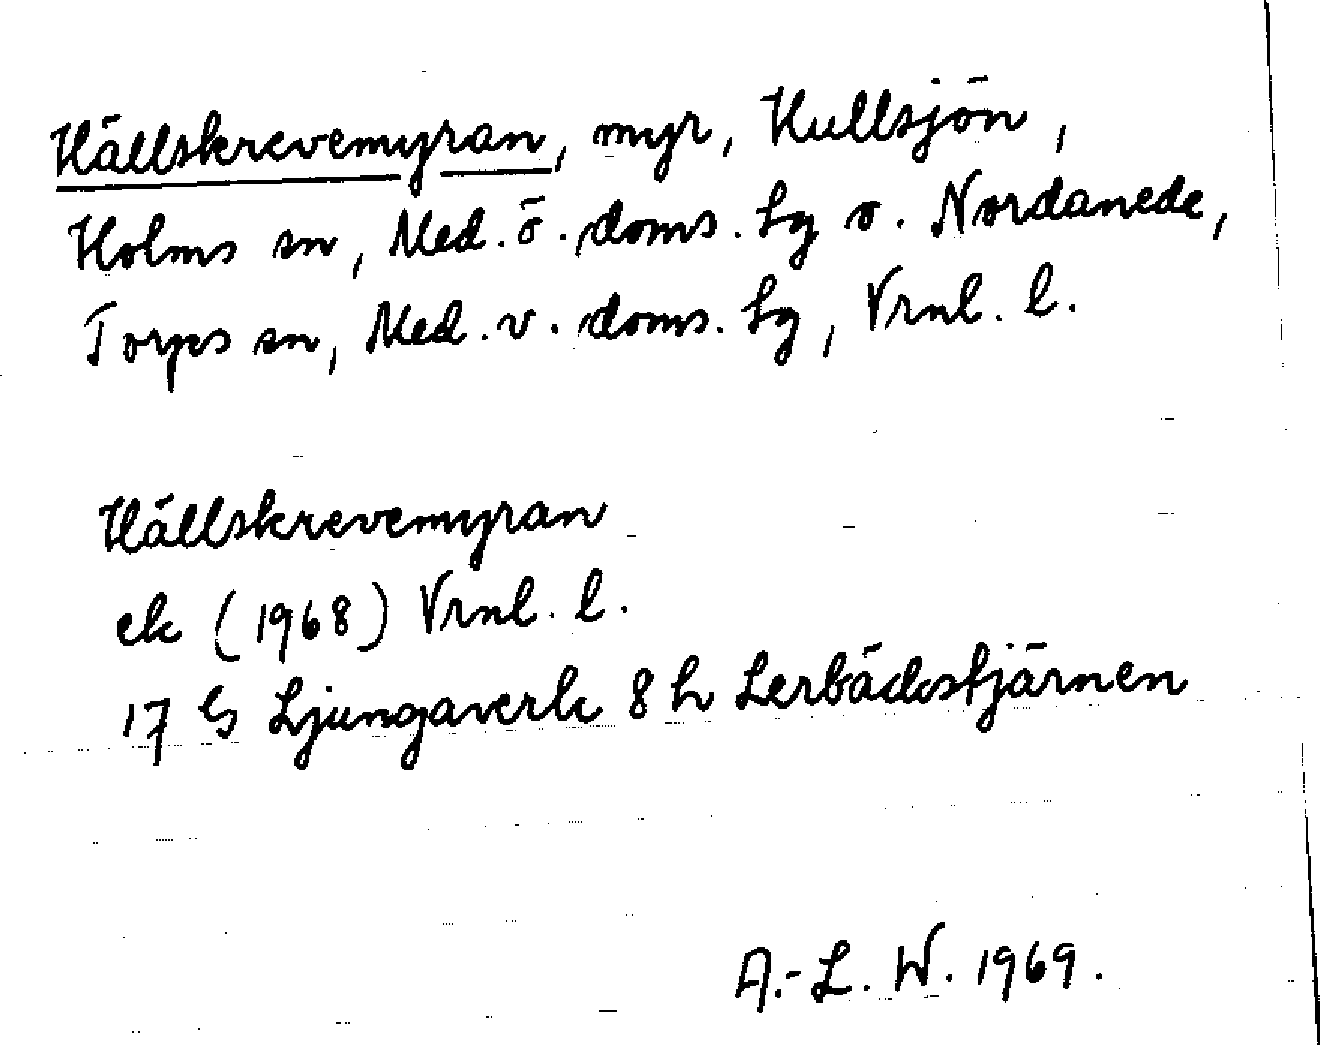 Hällskrevemyran, myr, Hullsjön,
Holms sn, Med. ö. doms. lg o. Nordanede,
Torps sn, Med. v. doms. lg, Vrnl. l.
Hällskrevemyran
ek (1968) Vrnl. l.
17 G Ljungaverk 8 h Lerbäckstjärnen
A.-L. W. 1969.